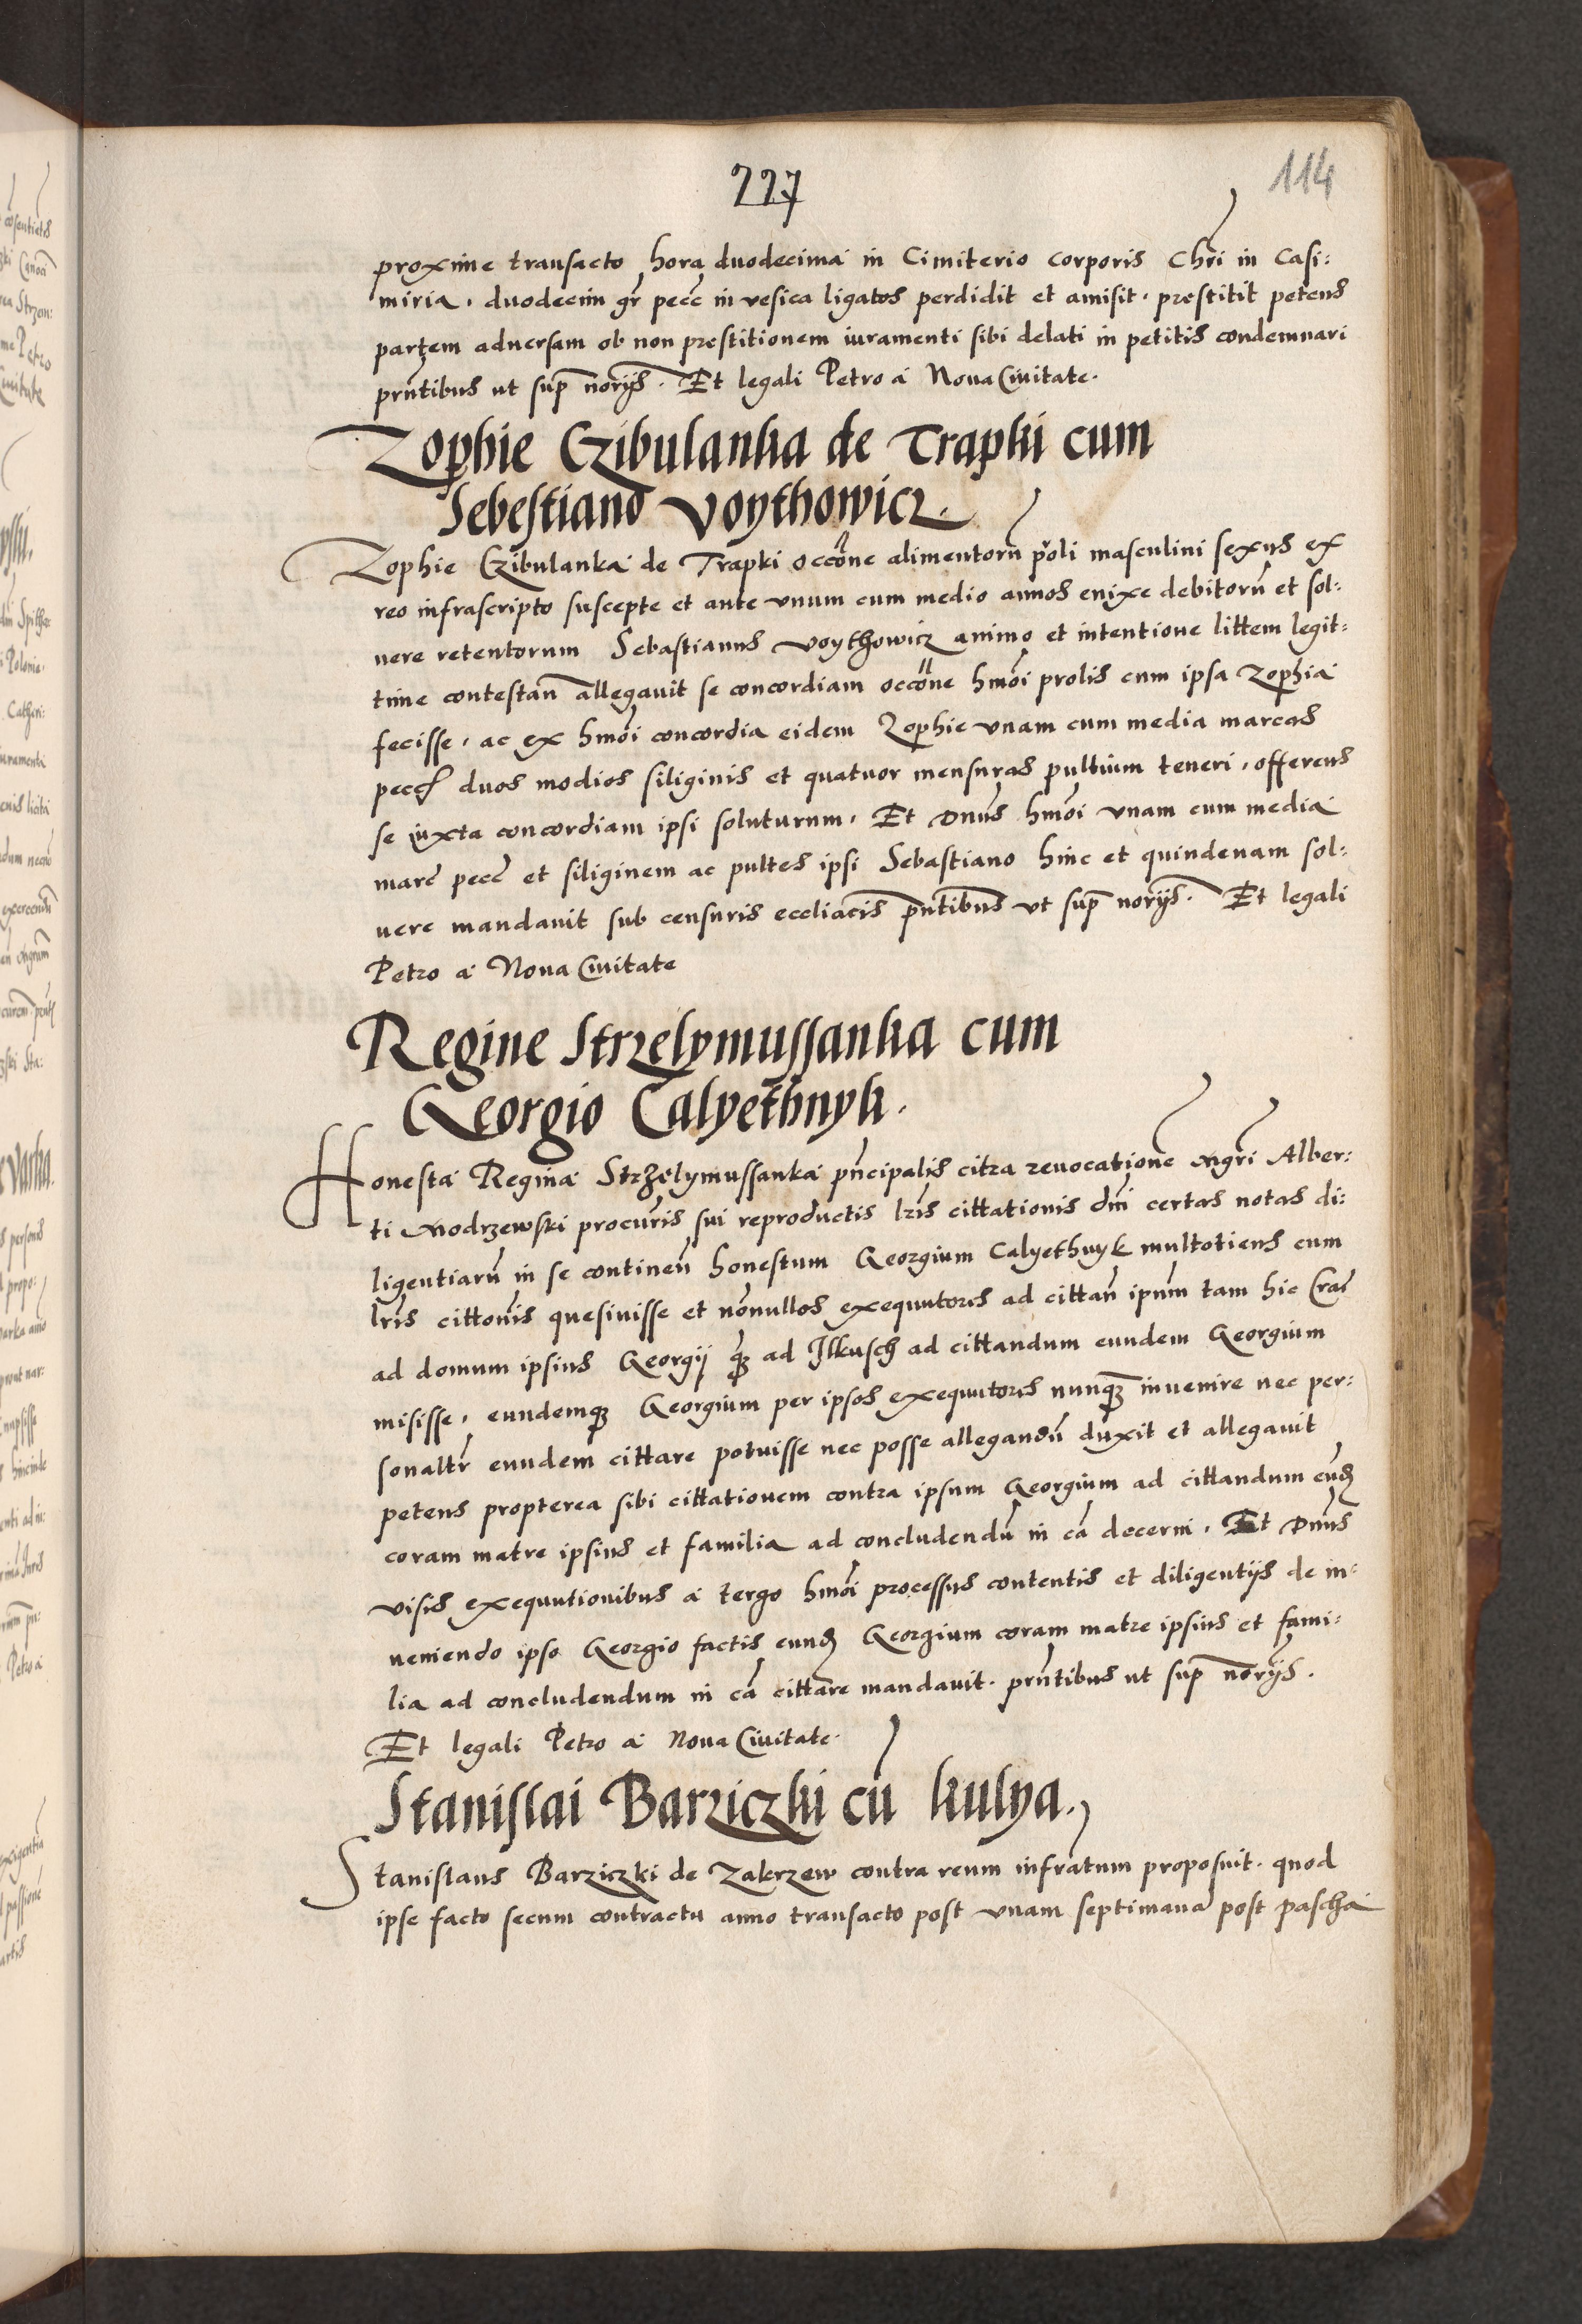 227
114
proxime transacto hora duodecima in Cimiterio corporis Chri in Casi:
miria. duodecim gr pecc in vesica ligatos perdidit et amisit. prestitit petens
partem adversam ob non prestitionem iuramenti sibi delati in petitis condemnari
prntibus ut sup norijs. Et legali Petro a Nova Civitate.
Zophie Czibulanka de Trapki cum
Sebestiano Voythowicz.
Zophie Czibulanka de Trapki occone alimentoru proli masculini sexus ex
reo infrascripto suscepte et ante unum cum medio annos enixe debitoru et sol:
vere retentorum Sebastianus Voythowicz animo et intentione littem legit:
time contestan allegavit se concordiam occone hmoi prolis cum ipsa Zophia
fecisse. ac ex hmoi concordia eidem Zophie unam cum media marcas
pecc duos modios siliginis et quatuor mensuras pultium teneri. offerens
se iuxta concordiam ipsi soluturum. Et Dnus hmoi unam cum media
marc pecc et siliginem ac pultes ipsi Sebastiano hinc et quindenam sol:
vere mandavit sub censuris eccliacis pntibus ut sup norijs. Et legali
Petro a Nova Civitate
Regine Strzelymussanka cum
Georgio Calyethnyk.
Honesta Regina Strzelymussanka pncipalis citra revocatione Mgri Alber:
ti Modrzewski procuris sui reproductis lris cittationis dni certas notas di:
ligentiaru in se continen honestum Georgium Calyethnyk multotiens cum
lris cittonis quesivisse et nonullos exequutores ad cittan ipum tam hic Crac
ad domum ipsius Georgij qz ad Ilkusch ad cittandum eundem Georgium
misisse. eundemqz Georgium per ipsos exequutores nunqz invenire nec per:
sonaltr eundem cittare potuisse nec posse allegandu duxit et allegavit
petens propterea sibi cittationem contra ipsum Georgium ad cittandum eund
coram matre ipsius et familia ad concludendu in ca decerni. Et Dnus
visis exequutionibus a tergo hmoi processus contentis et diligentijs de in:
veniendo ipso Georgio factis eund Georgium coram matre ipsius et fami:
lia ad concludendum in ca cittare mandavit. prntibus ut sup norijs.
Et legali Petro a Nova Civitate.
Stanislai Barziczki cu kulya.
Stanislaus Barziczki de Zakrzew contra reum infratum proposuit. quod
ipse facto secum contractu anno transacto post unam septimana post pascha